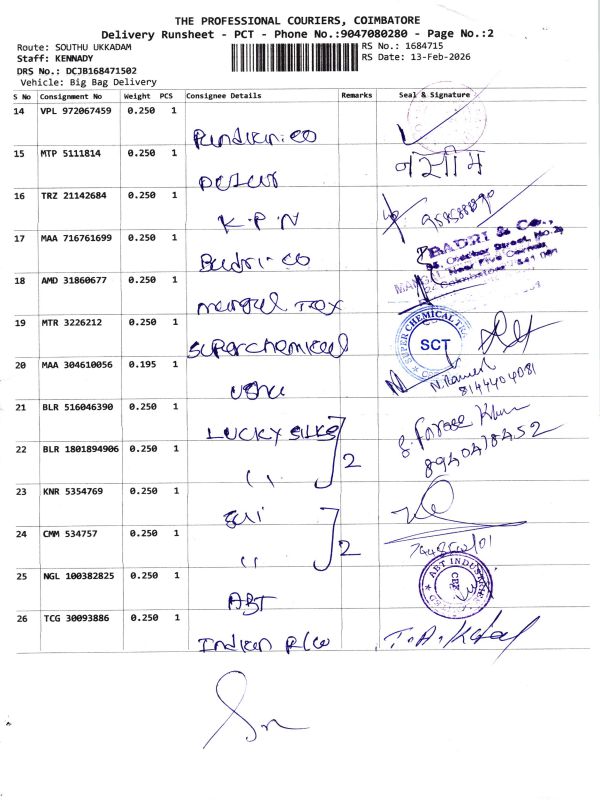 THE PROFESSIONAL COURIERS, COIMBATORE
Delivery Runsheet - PCT - Phone No.:9047080280 - Page No.:2
Route: SOUTHU UKKADAM RS No.: 1684715
Staff: KENNADY RS Date: 13-Feb-2026
DRS No.: DCJB168471502
Vehicle: Big Bag Delivery
S No Consignment No Weight PCS Consignee Details Remarks Seal & Signature
14 VPL 972067459 0.250 1
15 MTP 5111814 0.250 1 नसीम
16 TRZ 21142684 0.250 1 K.P.N
17 MAA 716761699 0.250 1 Badri-co BADRI & Co.,
18 AMD 31860677 0.250 1
19 MTR 3226212 0.250 1 Superchemical SUPER CHEMICAL SCT
20 MAA 304610056 0.195 1 usha N.Ramesh 8144404081
21 BLR 516046390 0.250 1 LUCKY SILKS
22 BLR 1801894906 0.250 1 ,, 2 8940418452
23 KNR 5354769 0.250 1
24 CMM 534757 0.250 1 ,, 2
25 NGL 100382825 0.250 1 ABT ABT INDUSTRIES
26 TCG 30093886 0.250 1 Indian